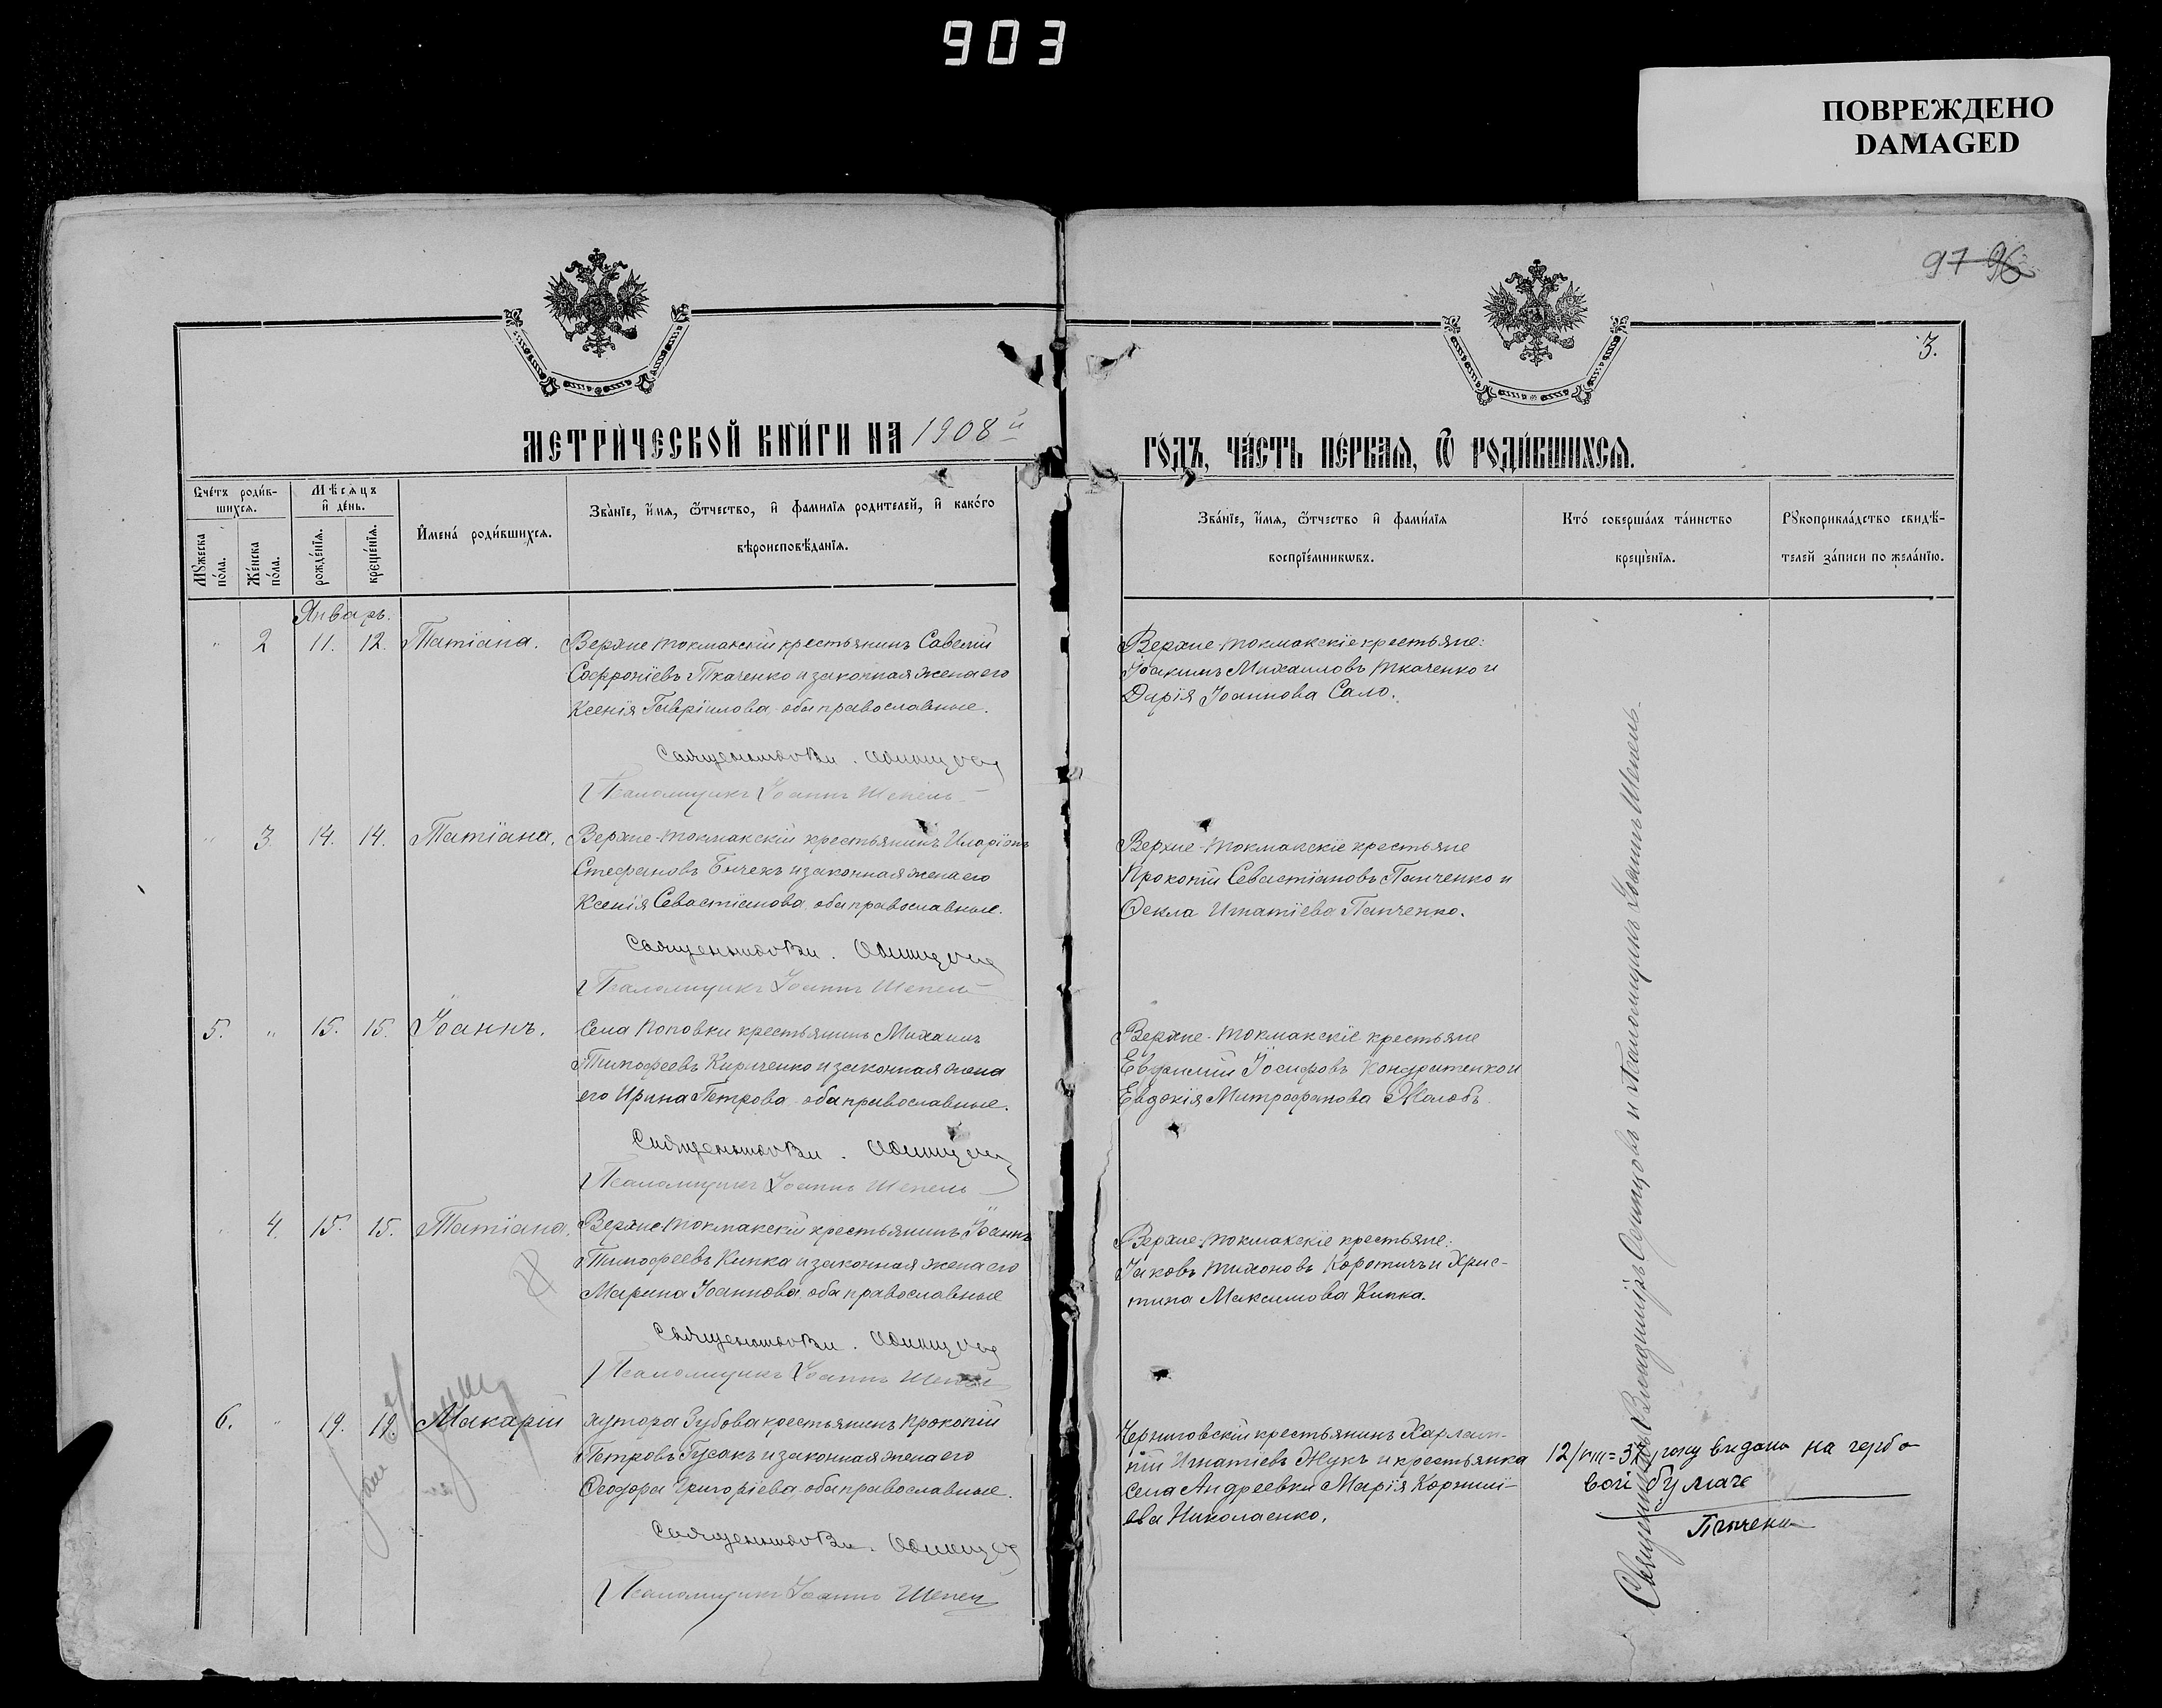 903
ПОВРЕЖДЕНО
DAMAGED
97 96
3.
МЕТРИЧЕСКОЙ КНИГИ НА 1908 й
ГОДЪ, ЧАСТЬ ПЕРВАЯ, Ѿ РОДИВШИХСЯ.
Счетъ родив-
шихся.
Мужеска
пола.
Женска
пола.
Мѣсяцъ
и день.
рожденія.
крещенія.
Имена родившихся.
Званіе, имя, ѿтчество, и фамилія родителей, и какого
вѣроисповѣданія.
Званіе, имя, ѿтчество и фамилія
воспріемниковъ.
Кто совершалъ таинство
крещенія.
Рукоприкладство свидѣ-
телей записи по желанію.
Январь.
" 2 11. 12. Татіана.
Верхне Токмакскій крестьянинъ Савелій
Софроніевъ Ткаченко и законная жена его
Ксенія Гавріилова оба православные.
Священникъ Вл. Одинцовъ
Псаломщикъ Іоаннъ Шепель
Верхне Токмакскіе крестьяне:
Іоакимъ Михаиловъ Ткаченко и
Дарія Іоаннова Сало.
" 3. 14. 14. Татіана.
Верхне-Токмакскій крестьянинъ Иларіонъ
Стефановъ Бычекъ и законная жена его
Ксенія Севастіанова, оба православные.
Священникъ Вл. Одинцовъ
Псаломщикъ Іоаннъ Шепель
Верхне-Токмакскіе крестьяне
Прокопій Севастіановъ Панченко и
Фекла Игнатіева Панченко.
5. " 15. 15. Іоаннъ.
Села Поповки крестьянинъ Михаилъ
Тимофеевъ Кириченко и законная жена
его Ирина Петрова оба православные.
Священникъ Вл. Одинцовъ
Псаломщикъ Іоаннъ Шепель
Верхне-Токмакскіе крестьяне
Евфимій Іосифовъ Кондратенко и
Евдокія Митрофанова Жолобъ
" 4. 15. 15. Татіана.
Верхне Токмакскій крестьянинъ Іоаннъ
Тимофеевъ Кипка и законная жена его
Марина Іоаннова, оба православные
Священникъ Вл. Одинцовъ
Псаломщикъ Іоаннъ Шепель
Верхне-Токмакскіе крестьяне:
Іаковъ Тихоновъ Коротичъ и Хрис-
тина Максимова Кипка.
6. " 19. 19. Макарій
хутора Зубова крестьянинъ Прокопій
Петровъ Гусакъ и законная жена его
Феодора Григоріева, оба православные.
Священникъ Вл. Одинцовъ
Псаломщикъ Іоаннъ Шепель
Черниговскій крестьянинъ Харламп-
пій Игнатіевъ Жукъ и крестьянка
села Андреевки Марія Корнилі-
ева Николаенко.
Священникъ Владиміръ Одинцовъ и Псаломщикъ Іоаннъ Шепель.
12/VIII=37 року видано на гербо
вої бумаге